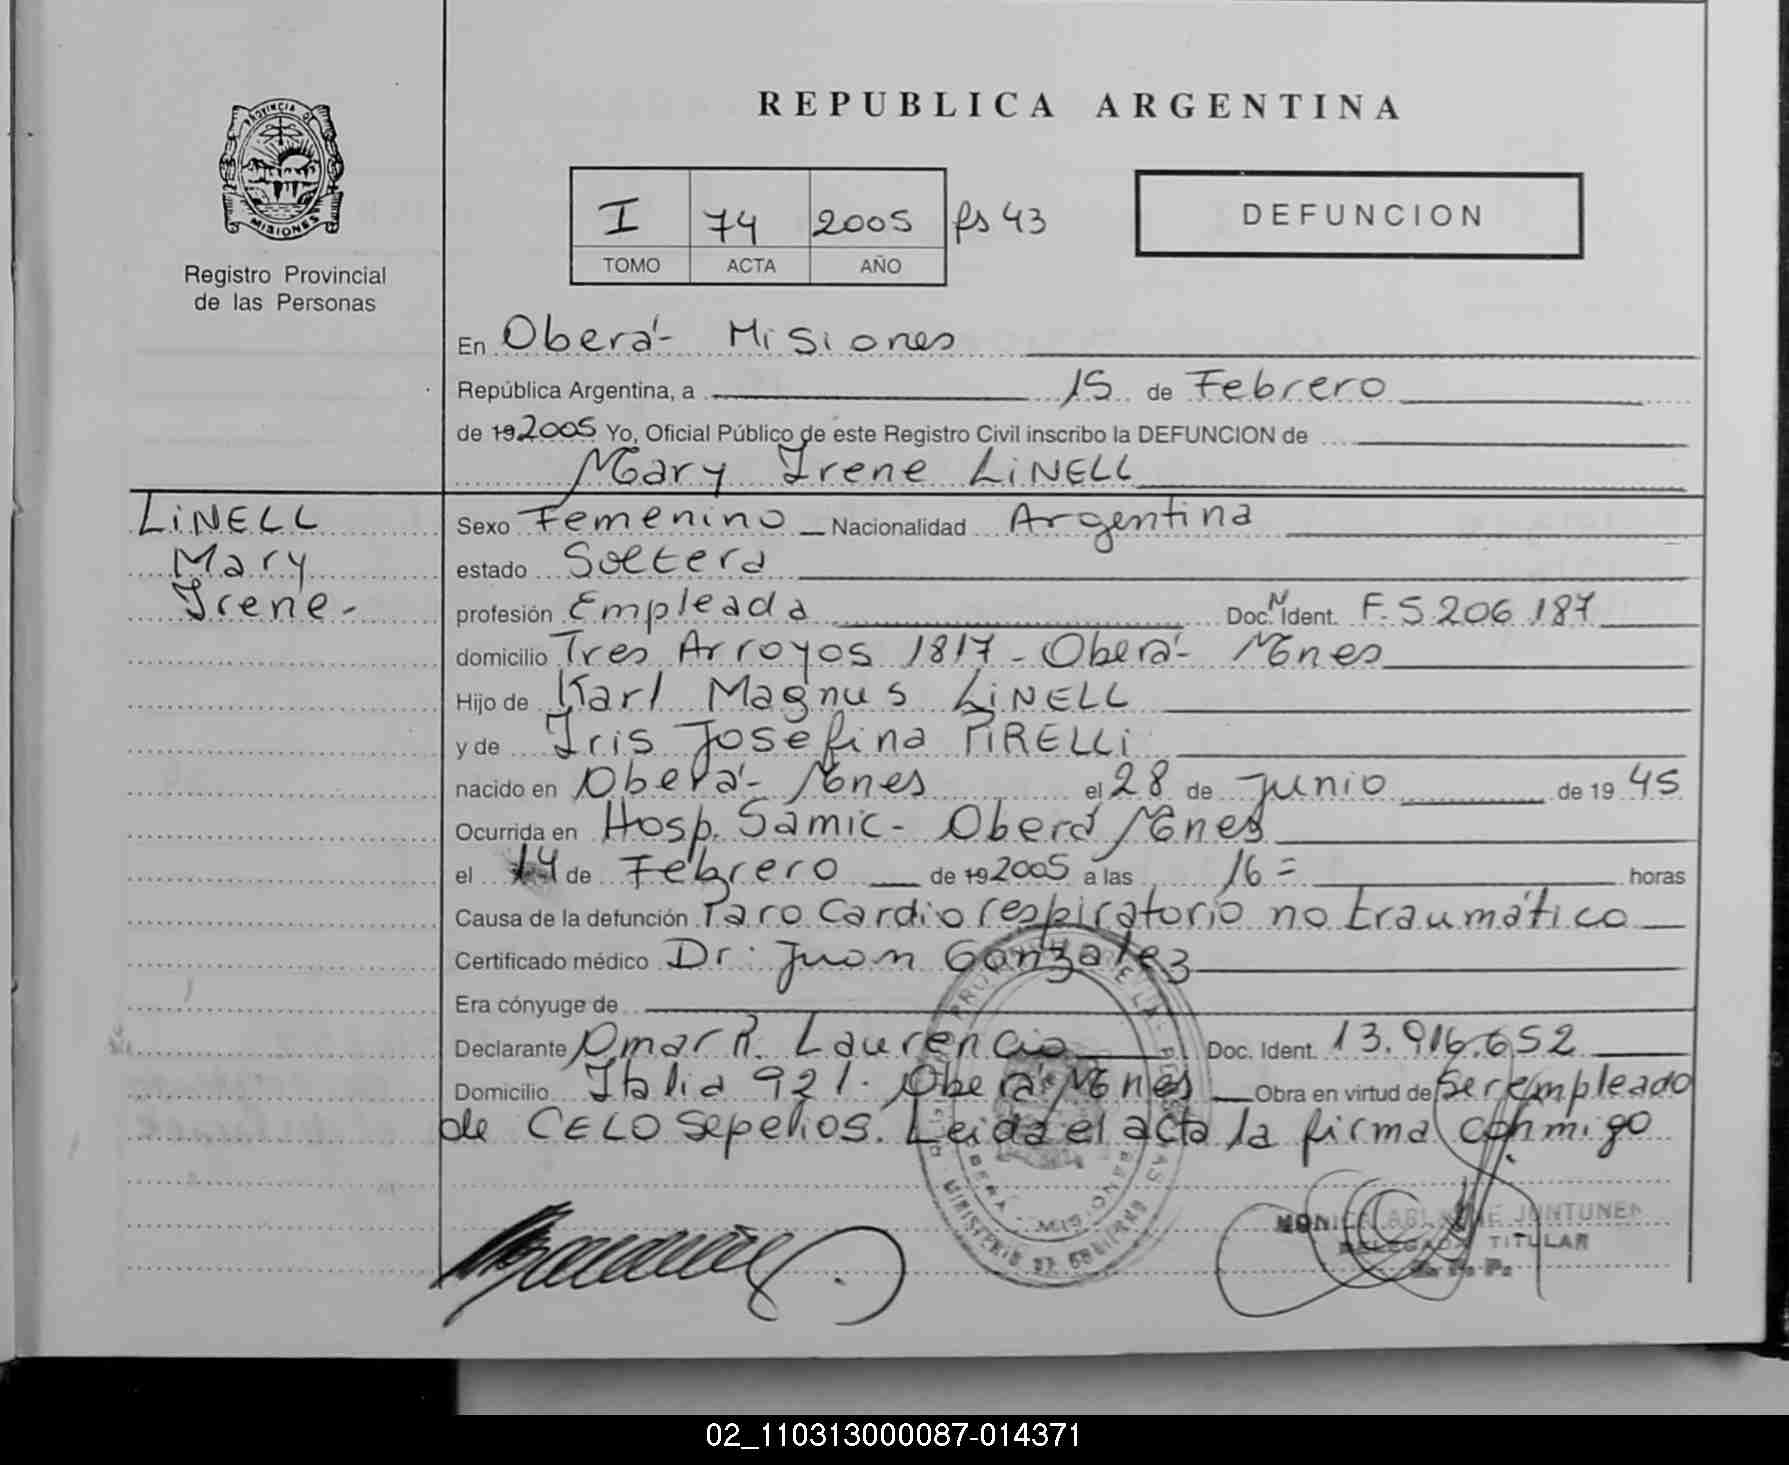 REPUBLICA ARGENTINA
PROVINCIA DE MISIONES
Registro Provincial
de las Personas
I 74 2005 fs 43
TOMO ACTA AÑO
DEFUNCION
En Oberá - Misiones
República Argentina, a 15 de Febrero
de 19 2005 Yo, Oficial Público de este Registro Civil inscribo la DEFUNCION de
Mary Irene LiNELL
LiNELL
Mary
Irene-
Sexo Femenino Nacionalidad Argentina
estado Soltera
profesión Empleada Doc. N Ident. F. 5.206.187
domicilio Tres Arroyos 1817 - Oberá - Mnes
Hijo de Karl Magnus LiNELL
y de Iris Josefina PiRELLi
nacido en Oberá - Mnes el 28 de Junio de 19 45
Ocurrida en Hosp. Samic - Oberá Mnes
el 14 de Febrero de 19 2005 a las 16 = horas
Causa de la defunción Paro Cardiorespiratorio no traumático
Certificado médico Dr: Juan Gonzalez
Era cónyuge de
Declarante Omar R. Laurencio Doc. Ident. 13.916.652
Domicilio Italia 921. Oberá Mnes Obra en virtud de Ser empleado
de CELO Sepelios. Leida el acta la firma conmigo
MINISTERIO DE GOBIERNO
DELEGADA TITULAR
02_110313000087-014371